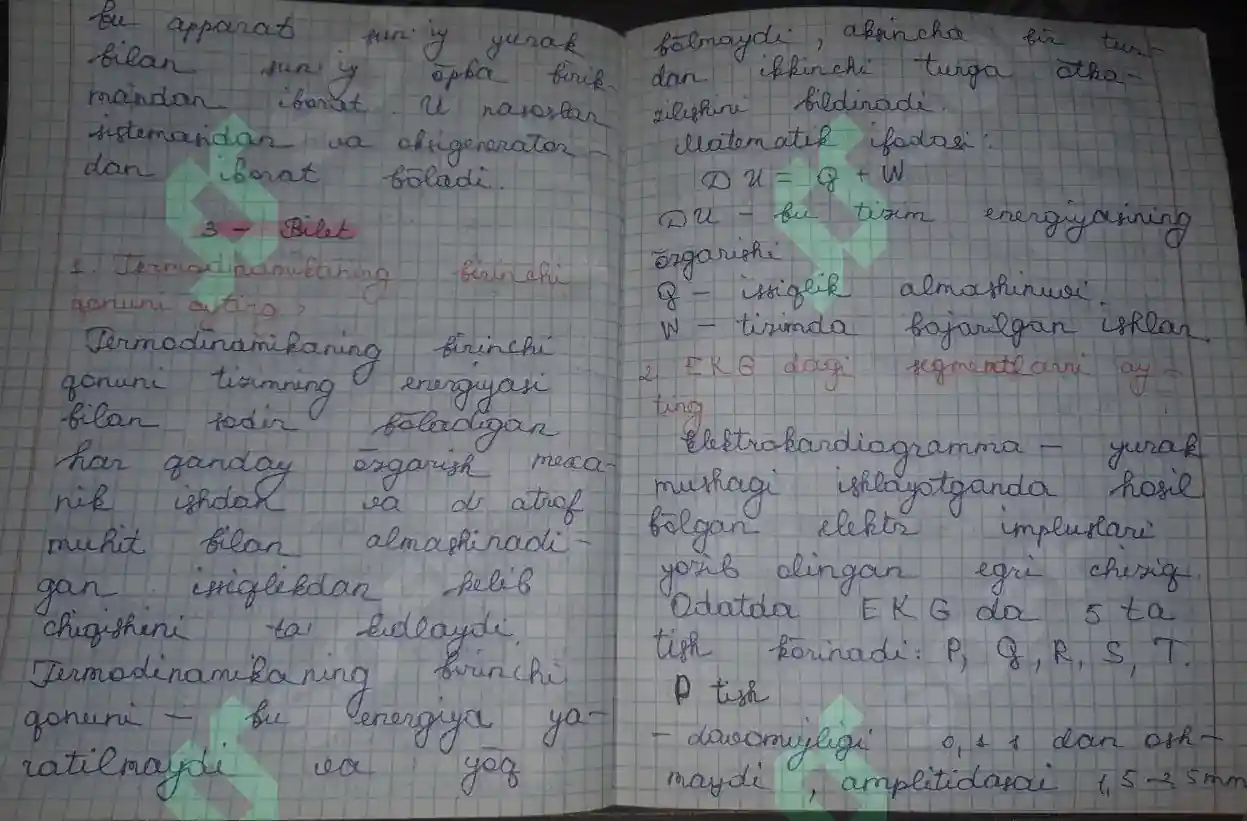 bu apparat sun'iy yurak
bilan sun'iy ōpka birik-
mandan iborat. U nasoslar
sistemasidan va oksigenerator-
dan iborat bōladi.
3 - Bilet
1. Termodinamikaning birinchi
qonuni ayting?
Termodinamikaning birinchi
qonuni tizimning energiyasi
bilan sodir bōladigan
har qanday ōzgarish mexa-
nik ishdan va atrof
muhit bilan almashinadi-
gan issiqlikdan kelib
chiqishini ta'kidlaydi.
Termodinamikaning birinchi
qonuni - bu energiya ya-
ratilmaydi va yōq
bōlmaydi, aksincha bir tur-
dan ikkinchi turga ōtka-
zilishini bildiradi.
Matematik ifodasi:
U = Q + W
U - bu tizim energiyasining
ōzgarishi
Q - issiqlik almashinuvi.
W - tizimda bajarilgan ishlar.
2. EKG dagi segmentlarni ay-
ting
Elektrokardiagramma - yurak
mushagi ishlayotganda hosil
bōlgan elektr impluslari
yozib olingan egri chiziq.
Odatda EKG da 5 ta
tish kōrinadi: P, Q, R, S, T.
P tish
- davomiyligi 0,1 s dan osh-
maydi, amplitidasai 1,5-2 5mm